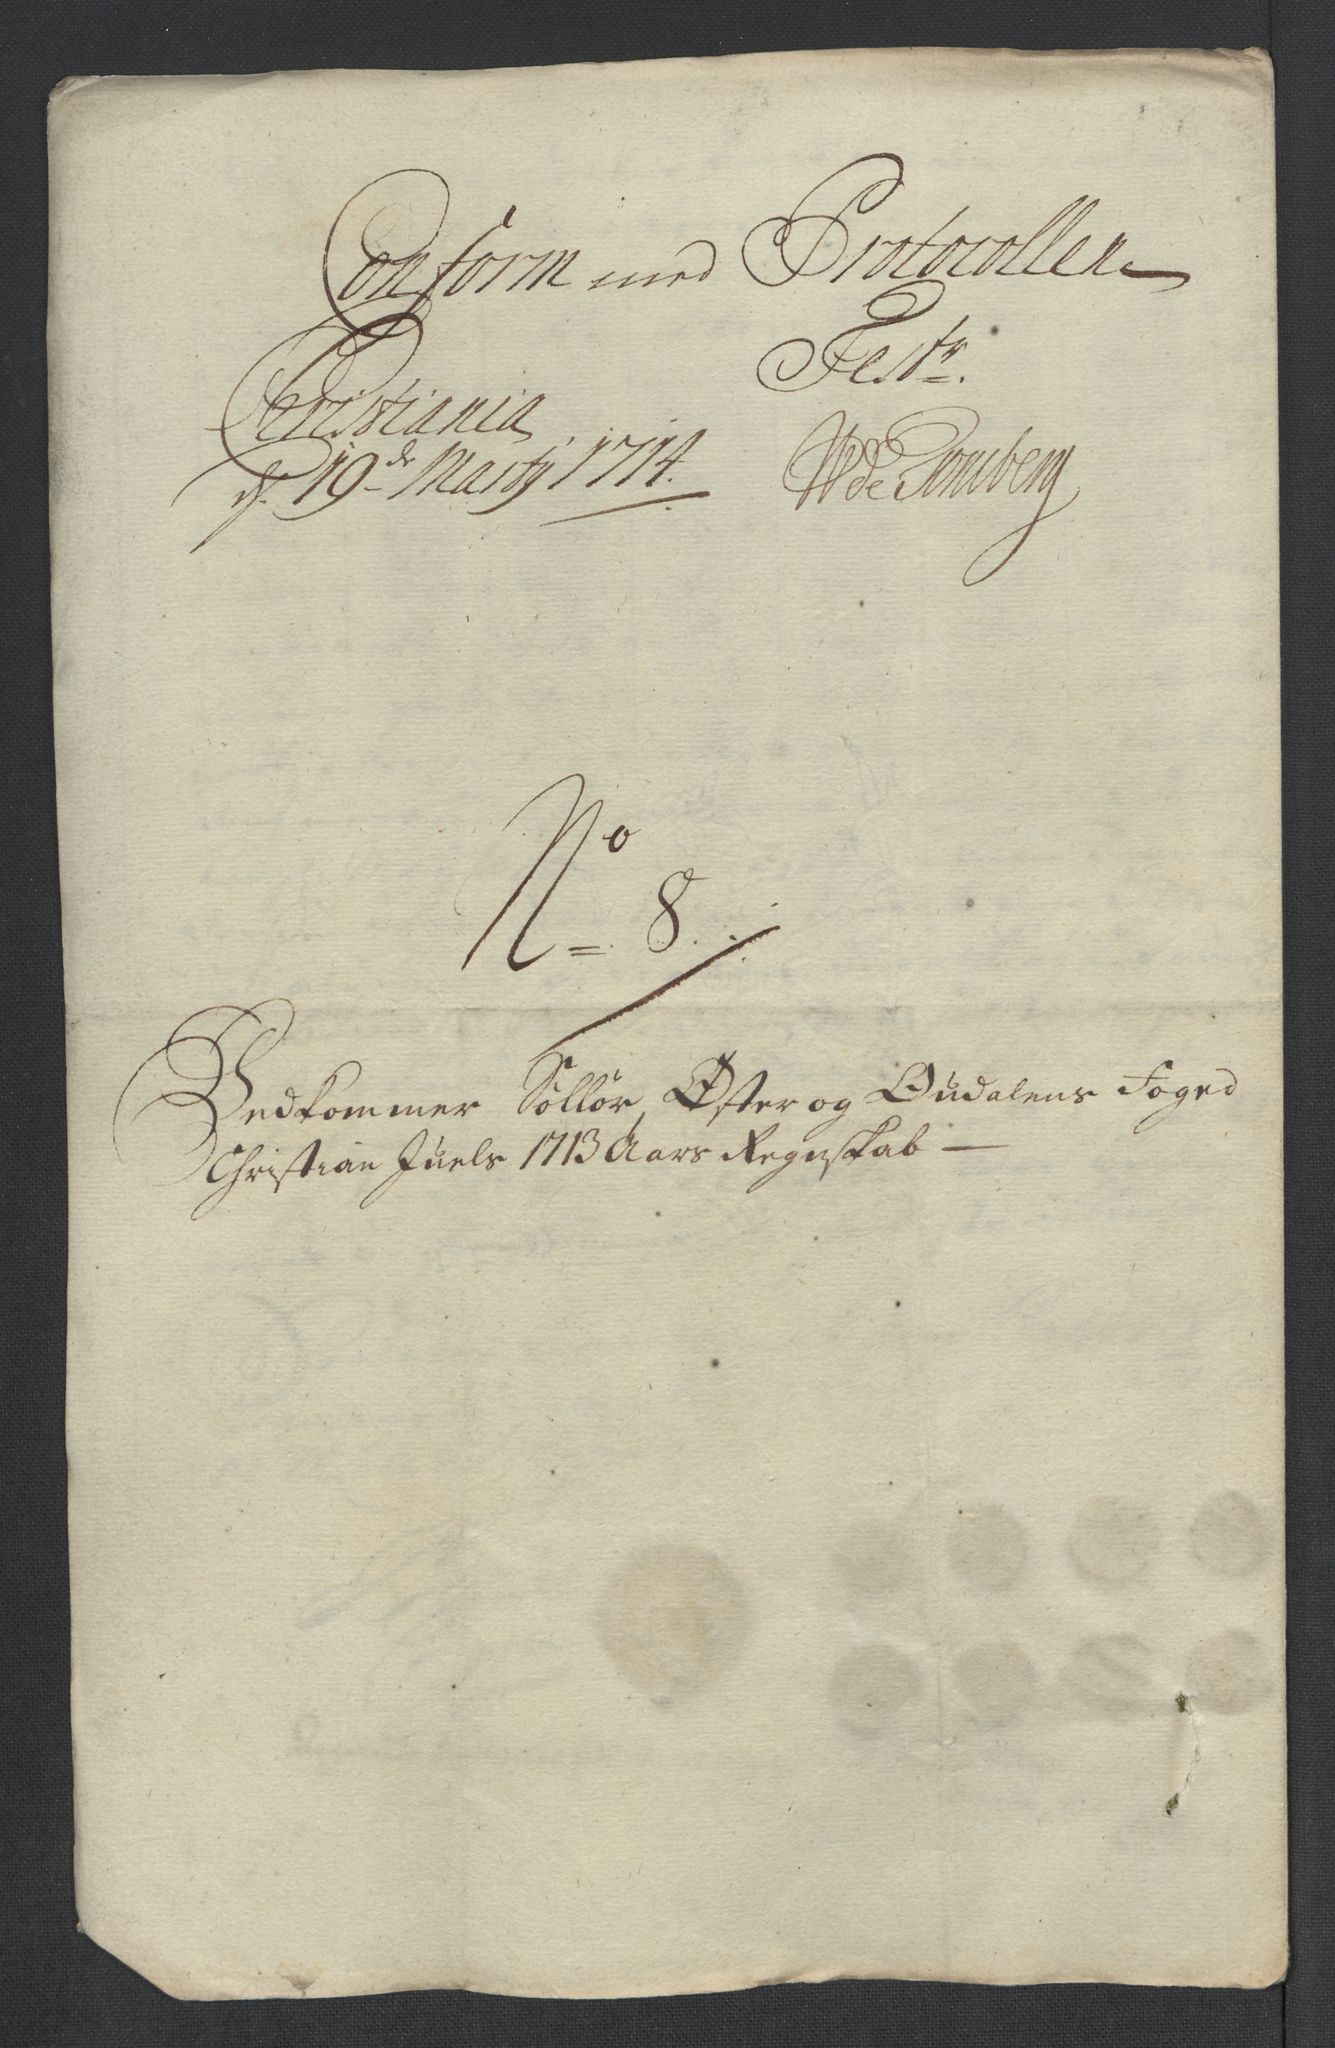 Conform med Protocollen
Test:
Christiania
d. 19de Martij 1714.
W de Tonsberg
No 8.
Vedkommer Sollør, Øster og Oudalens Foged
Christian Juels 1713 Aars Regnskab —